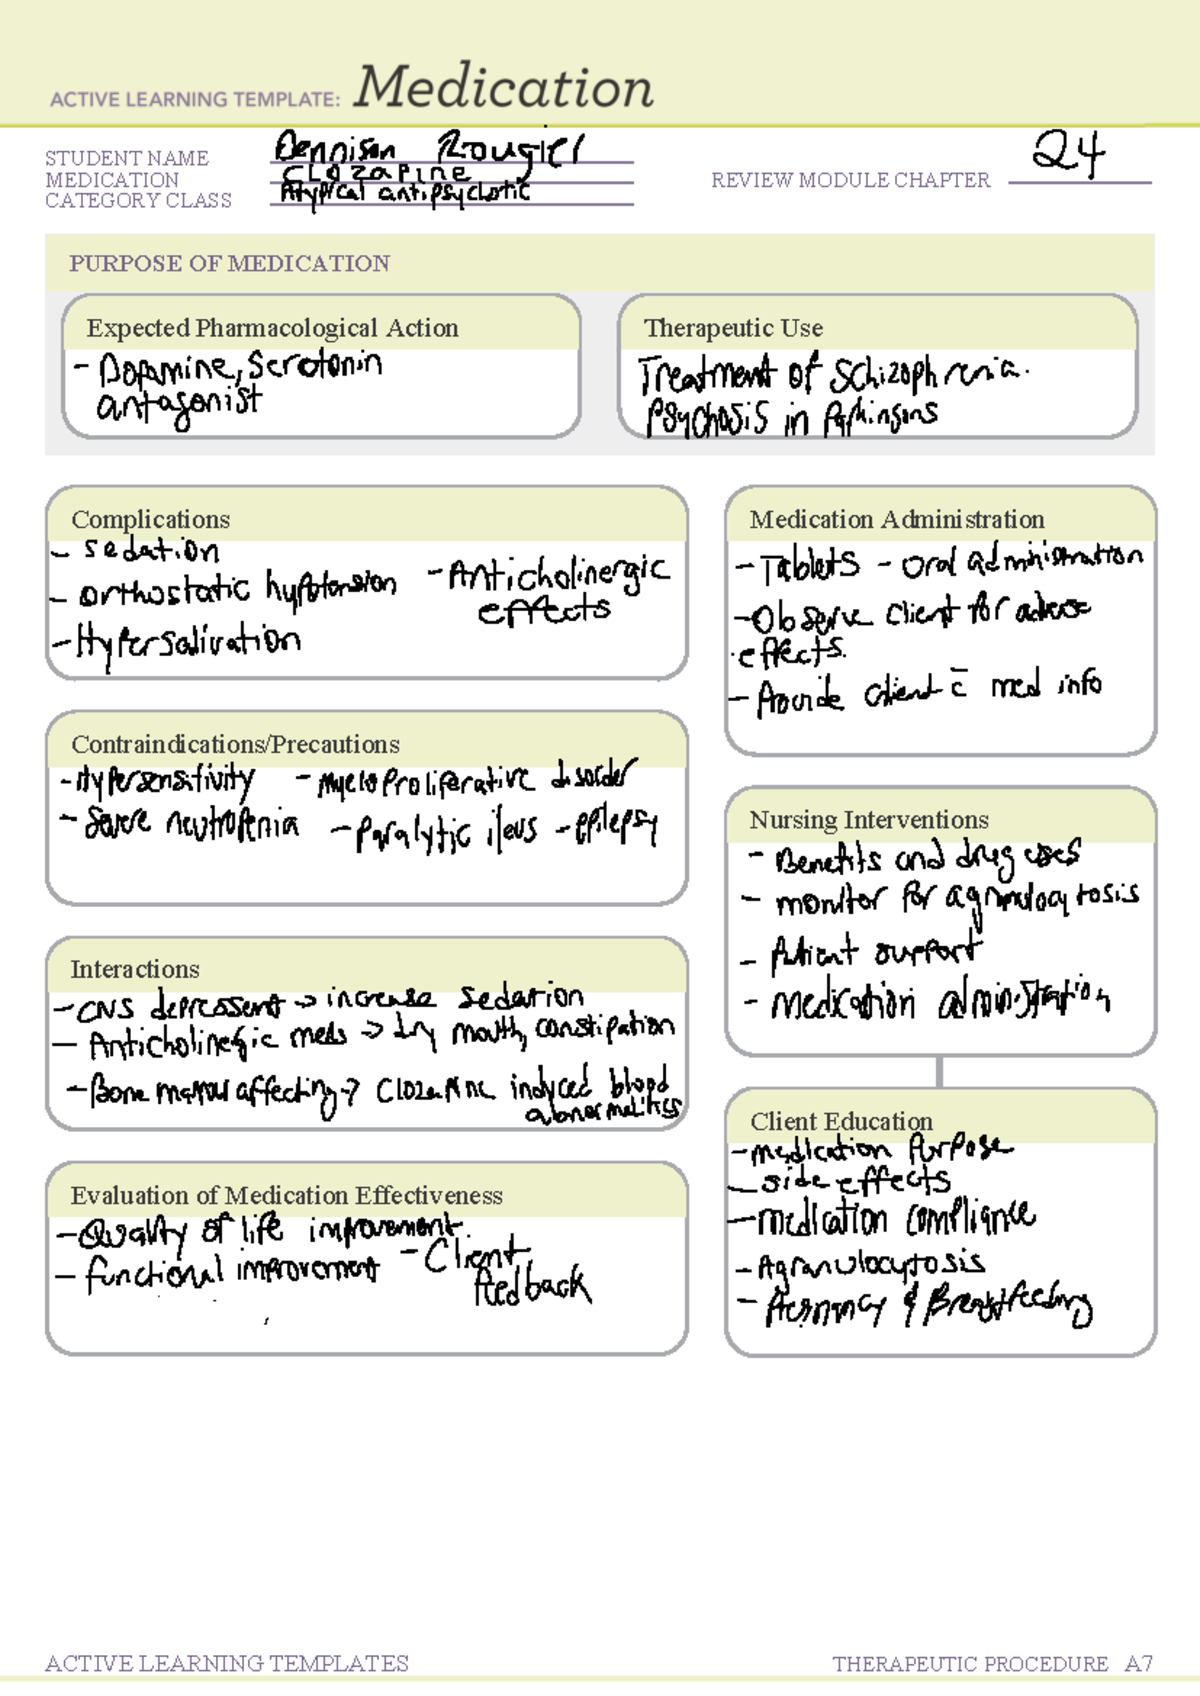 ACTIVE LEARNING TEMPLATE: Medication
STUDENT NAME Dennison Rougier
MEDICATION CLOZAPINE
CATEGORY CLASS Atypical antipsychotic
REVIEW MODULE CHAPTER 24
PURPOSE OF MEDICATION
Expected Pharmacological Action
- Dopamine, Serotonin
antagonist
Therapeutic Use
Treatment of Schizophrenia.
Psychosis in Parkinsons
Complications
- sedation
- orthostatic hypotension
- Hypersalivation
- Anticholinergic
effects
Medication Administration
- Tablets - oral administration
- Observe client for adverse
effects.
- Provide client c̄ med info
Contraindications/Precautions
- Hypersensitivity - Myeloproliferative disorder
- Severe neutropenia - Paralytic ileus - epilepsy
Nursing Interventions
- Benefits and drug uses
- monitor for agranulocytosis
- Patient support
- Medication administration
Interactions
- CNS depressent → increase sedation
- Anticholinergic meds → dry mouth, constipation
- Bone marrow affecting → Clozapine induced blood
abnormalities
Client Education
- medication purpose
- side effects
- medication compliance
- Agranulocytosis
- Pregnancy & Breastfeeding
Evaluation of Medication Effectiveness
- Quality of life improvement.
- functional improvement - Client
feedback
ACTIVE LEARNING TEMPLATES
THERAPEUTIC PROCEDURE A7